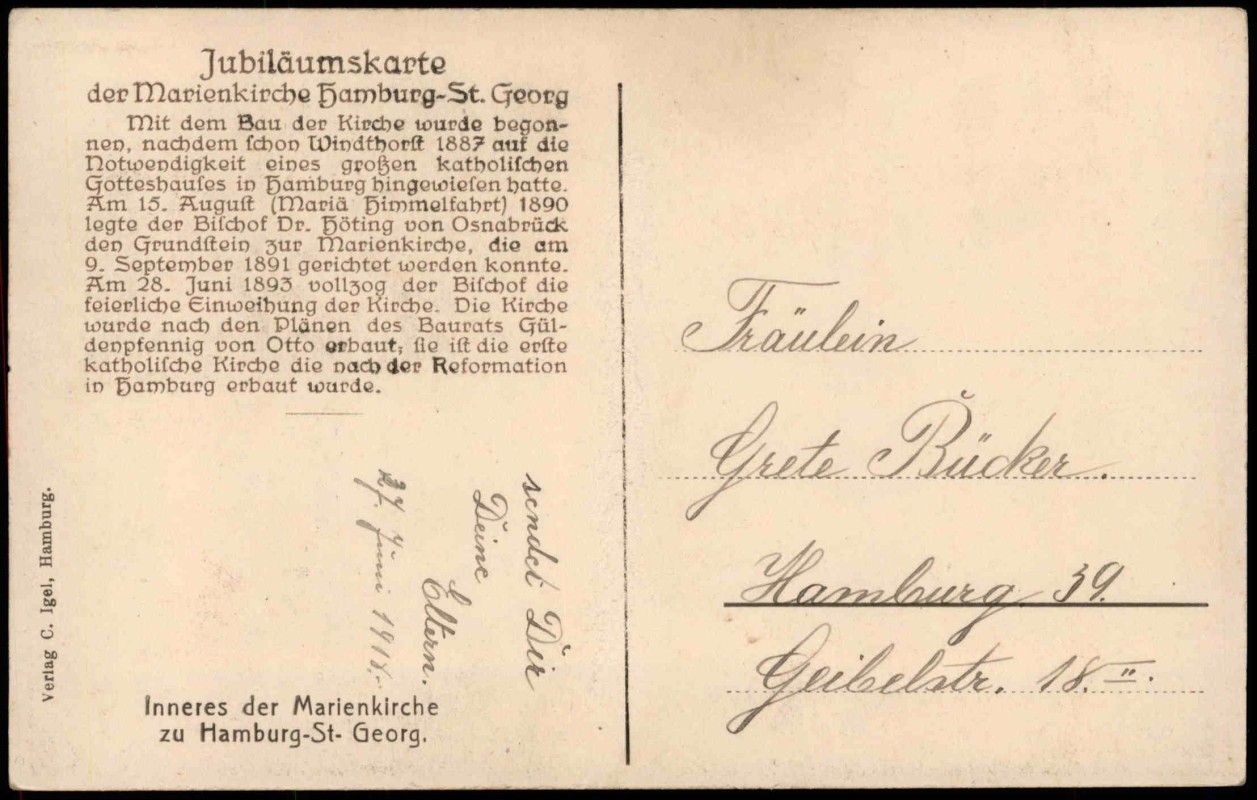 Jubiläumskarte
der Marienkirche Hamburg-St. Georg
Mit dem Bau der Kirche wurde begon-
nen, nachdem ſchon Windthorſt 1887 auf die
Notwendigkeit eines großen katholiſchen
Gotteshauſes in Hamburg hingewieſen hatte.
Am 15. Auguſt (Mariä Himmelfahrt) 1890
legte der Biſchof Dr. Höting von Osnabrück
den Grundſtein zur Marienkirche, die am
9. September 1891 gerichtet werden konnte.
Am 28. Juni 1893 vollzog der Biſchof die
feierliche Einweihung der Kirche. Die Kirche
wurde nach den Plänen des Baurats Gül-
denpfennig von Otto erbaut, ſie iſt die erſte
katholiſche Kirche die nach der Reformation
in Hamburg erbaut wurde.
sendet Dir
Deine
Eltern.
27. Juni 1918.
Verlag C. Igel, Hamburg.
Inneres der Marienkirche
zu Hamburg-St- Georg.
Fräulein
Grete Bücker.
Hamburg 39.
Geibelstr. 18.II.